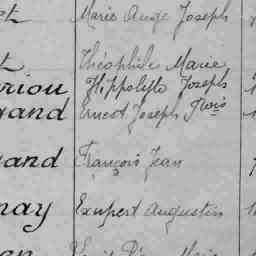 et Marie Ange Joseph
t Théophile Marie
riou Hippolyte Joseph
grand Ernest Joseph Fçois
and François Jean
nay Exupert Augustin